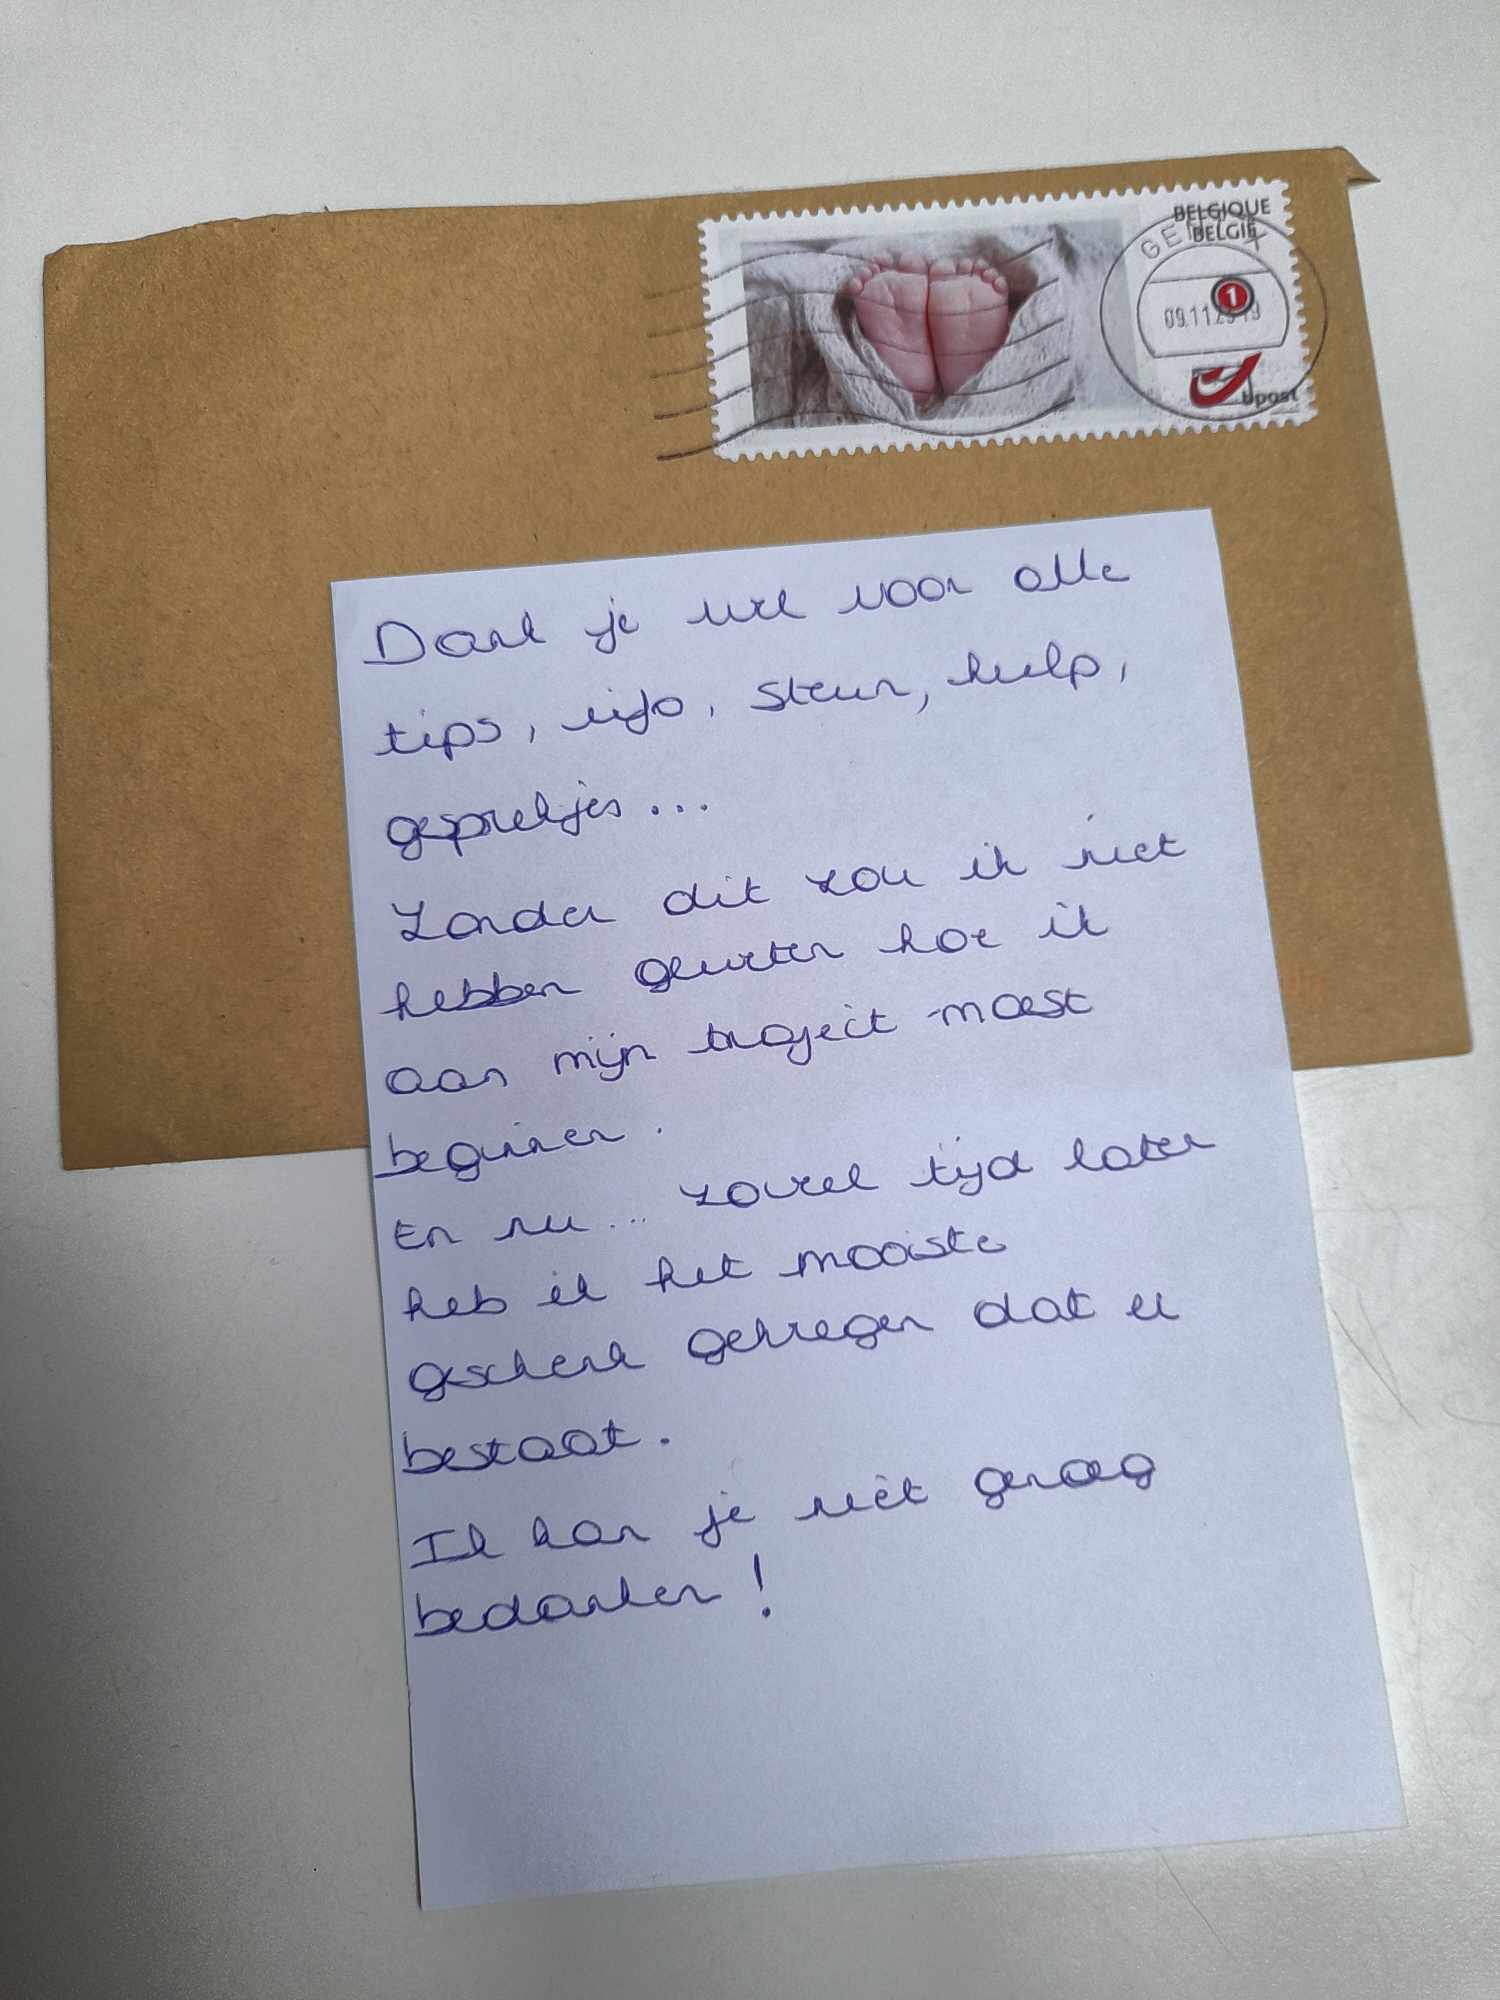 BELGIQUE
BELGIË
GENT X
1
09.11.
bpost
Dank je wel voor alle
tips, info, steun, hulp,
gesprekjes...
Zonder dit zou ik niet
hebben geweten hoe ik
aan mijn traject moest
beginnen.
En nu... zoveel tijd later
heb ik het mooiste
geschenk gekregen dat er
bestaat.
Ik kan je niet genoeg
bedanken!